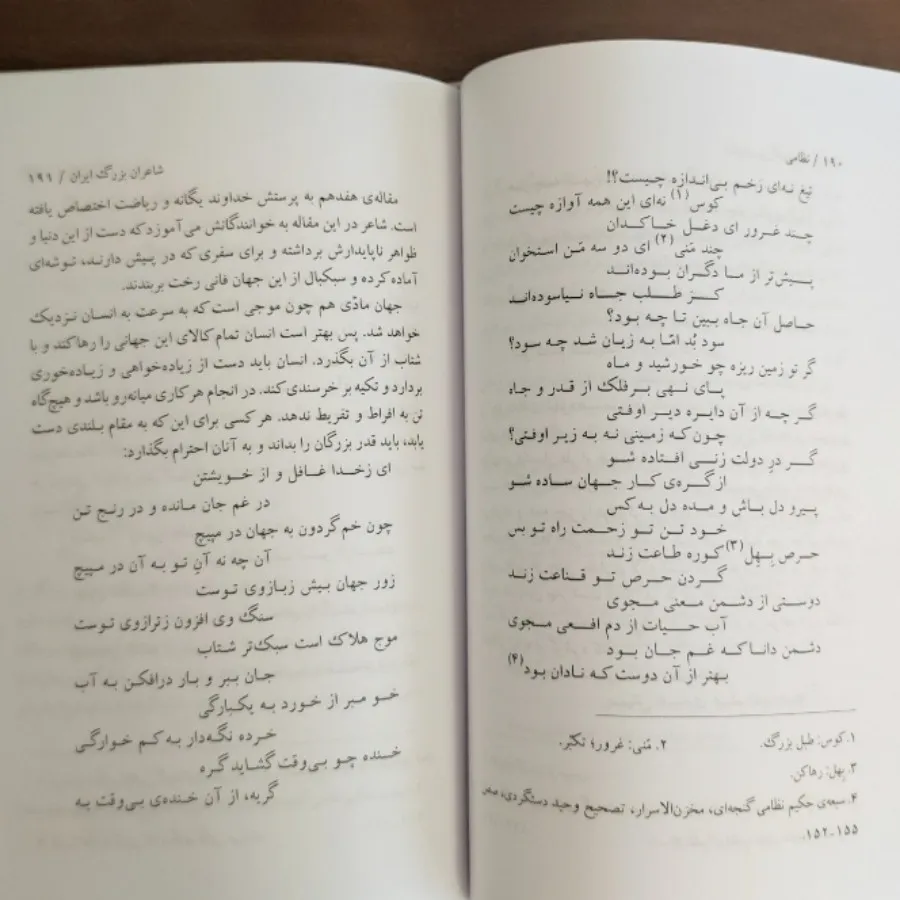 ۱۹۰ / نظامی
تیغ نه‌ای زخم بی‌اندازه چیست؟!
کوس(۱) نه‌ای این همه آوازه چیست
چند غرور ای دغل خاکدان
چند مَنی(۲) ای دو سه مَن استخوان
پیش‌تر از ما دگران بوده‌اند
کز طلب جاه نیاسوده‌اند
حاصل آن جاه ببین تا چه بود؟
سود بُد امّا به زیان شد چه سود؟
گر تو زمین ریزه چو خورشید و ماه
پای نهی بر فلک از قدر و جاه
گر چه از آن دایره دیر اوفتی
چون که زمینی نه به زیر اوفتی؟
گر درِ دولت زنی افتاده شو
از گره‌ی کار جهان ساده شو
پیرو دل باش و مده دل به کس
خود تن تو زحمت راه تو بس
حرص بِهِل(۳) کوره طاعت زند
گردن حرص تو قناعت زند
دوستی از دشمن معنی مجوی
آب حیات از دم افعی مجوی
دشمن دانا که غم جان بود
بهتر از آن دوست که نادان بود(۴)
۱.کوس: طبل بزرگ. ۲. مَنی: غرور؛ تکبّر.
۳. بِهِل: رها کن.
۴. سبعه‌ی حکیم نظامی گنجه‌ای، مخزن‌الاسرار، تصحیح وحید دستگردی، صص
۱۵۵-۱۵۲.
شاعران بزرگ ایران / ۱۹۱
مقاله‌ی هفدهم به پرستش خداوند یگانه و ریاضت اختصاص یافته
است. شاعر در این مقاله به خوانندگانش می‌آموزد که دست از این دنیا و
ظواهر ناپایدارش برداشته و برای سفری که در پیش دارند، توشه‌ای
آماده کرده و سبکبال از این جهان فانی رخت بربندند.
جهان مادّی هم چون موجی است که به سرعت به انسان نزدیک
خواهد شد. پس بهتر است انسان تمام کالای این جهانی را رها کند و با
شتاب از آن بگذرد. انسان باید دست از زیاده‌خواهی و زیاده‌خوری
بردارد و تکیه بر خرسندی کند. در انجام هر کاری میانه‌رو باشد و هیچ‌گاه
تن به افراط و تفریط ندهد. هر کسی برای این که به مقام بلندی دست
یابد، باید قدر بزرگان را بداند و به آنان احترام بگذارد:
ای زخدا غافل و از خویشتن
در غم جان مانده و در رنج تن
چون خم گردون به جهان در مپیچ
آن چه نه آنِ تو به آن در مپیچ
زور جهان بیش زبازوی توست
سنگ وی افزون زترازوی توست
موج هلاک است سبک‌تر شتاب
جان ببر و بار درافکن به آب
خو مبر از خورد به یکبارگی
خرده نگه‌دار به کم خوارگی
خنده چو بی‌وقت گشاید گره
گریه، از آن خنده‌ی بی‌وقت به